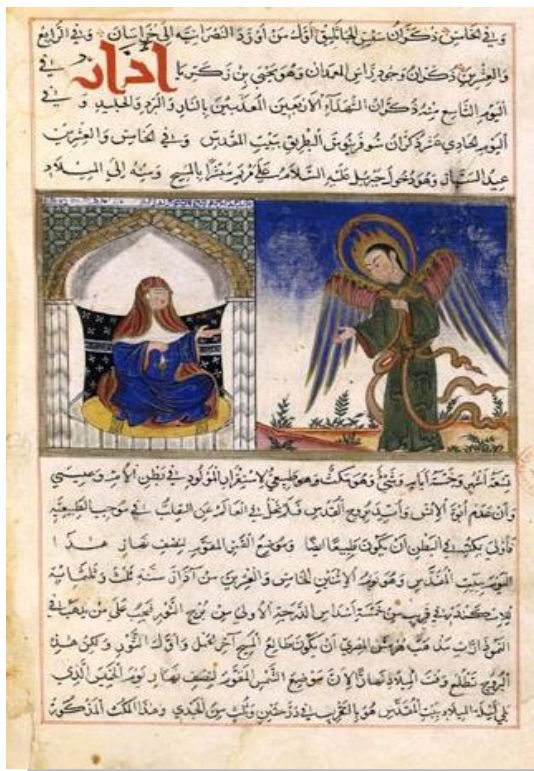 وفي الخامس ذكران سيس الجاثليق اول من اورد النصرانية الى خراسان وفي الرابع
والعشرين ذكران وجود راس المعمدان وهو يحيى بن زكريا اذار في
اليوم التاسع منه ذكران الشهداء الاربعين المعذبين بالنار والبرد والجليد وفي
اليوم الحادي عشر ذكران سوفرنيوس البطريق ببيت المقدس وفي الخامس والعشرين
عيد السبار وهو دخول جبريل عليه السلام على مريم مبشرا بالمسيح ومنه الى الميلاد
تسعة اشهر وخمسة ايام وشيء وهو مكث وهو طبيعي لاستقرار المولود في بطن الام وعيسى
وان عدم ابوة الانس وايد بروح القدس فلم يخل في العالم عن التقلب في موجب الطبيعية
فاولى بمكثه في البطن ان يكون طبيعيا ايضا وموضع القمر المقوم لنصف نهار هذا
اليوم ببيت المقدس وهو يوم الاثنين الخامس والعشرين من آذار سنة ثلث وثلثمائة
للاسكندر في قريب من خمسة اسداس الدرجة الاولى من برج الثور فيجب على من يذهب في
النموذارات مذهب هرمس المصري ان يكون طالع المسيح آخر الحمل واول الثور ولكن هذه
البروج تطلع وقت الميلاد نهارا لان موضع الشمس المقوم لنصف نهار يوم الخميس الذي
يلي ليلة الميلاد ببيت المقدس هو بالتقريب في درجتين وثلث من الجدي وهذا المكث المذكور